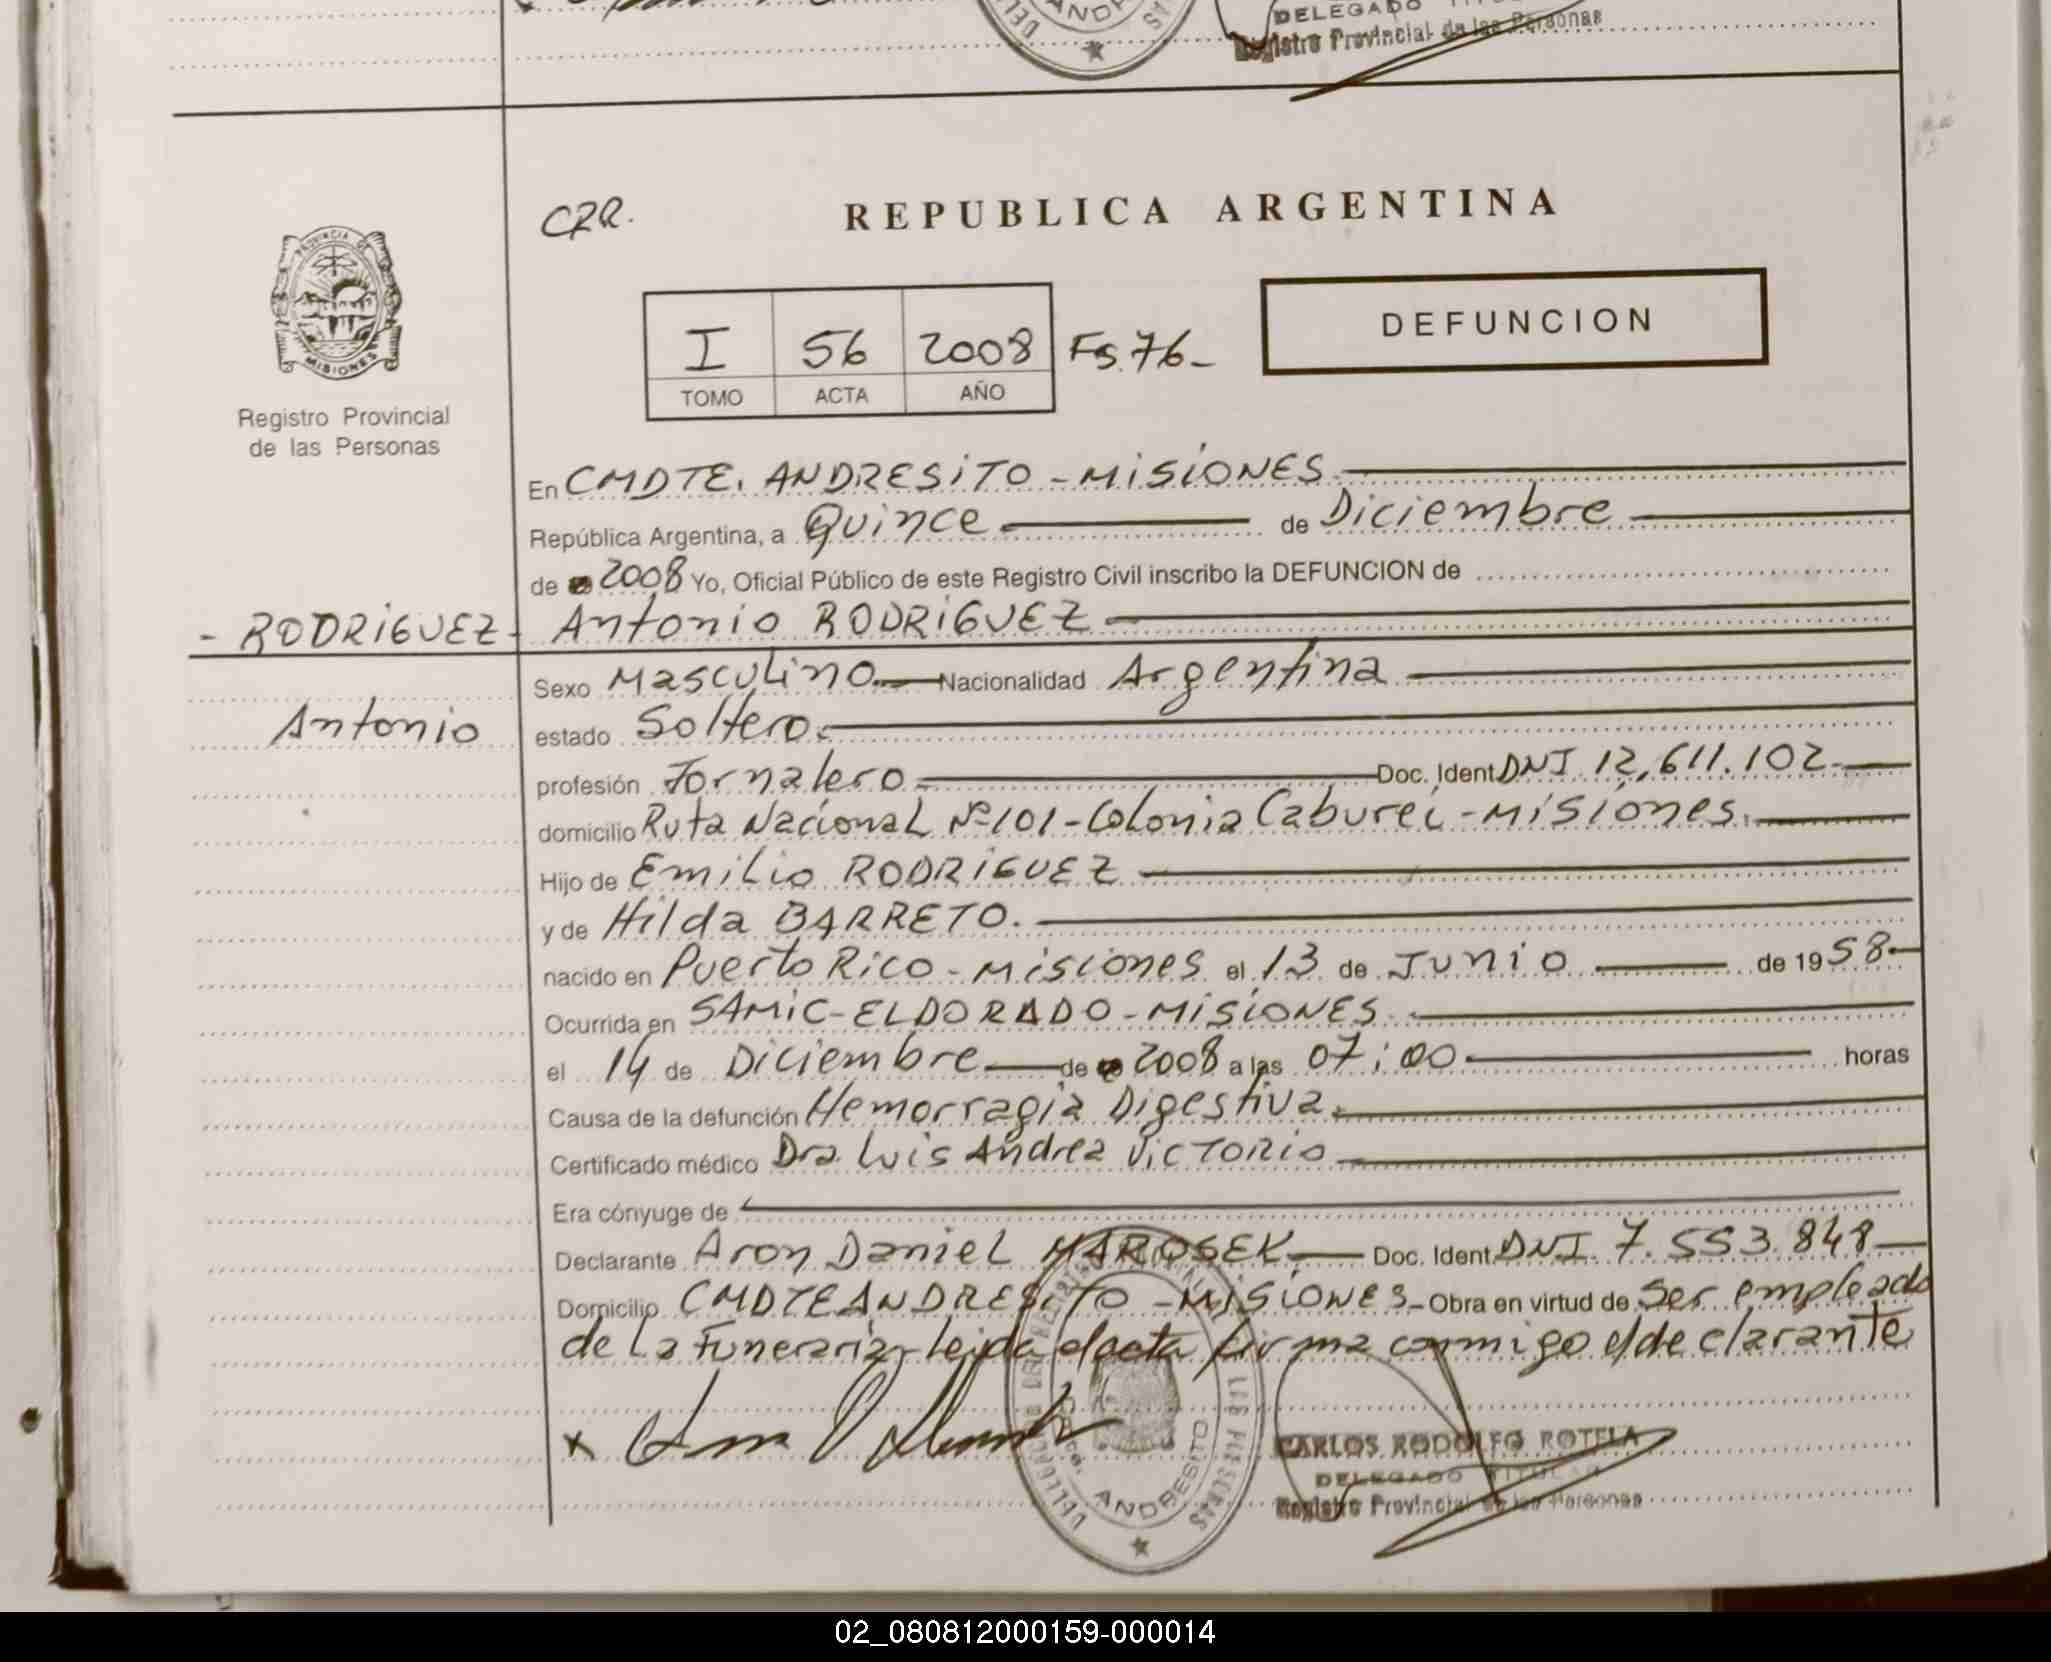 DELEGADO
Registro Provincial de las Personas
C2R.
REPUBLICA ARGENTINA
PROVINCIA DE
MISIONES
I 56 2008 Fs.76-
TOMO ACTA AÑO
DEFUNCION
Registro Provincial
de las Personas
En CMDTE. ANDRESiTO - MiSiONES
República Argentina, a Quince de Diciembre
de 2008 Yo, Oficial Público de este Registro Civil inscribo la DEFUNCION de
- RODRiGUEZ - Antonio RODRiGUEZ
Sexo Masculino Nacionalidad Argentina
Antonio estado Soltero.
profesión Jornalero Doc. Ident. DNI 12.611.102
domicilio Ruta Nacional Nº101 - Colonia Caburei - Misiones.
Hijo de Emilio RODRiGUEZ
y de Hilda BARRETO.
nacido en Puerto Rico - Misiones el 13 de Junio de 1958
Ocurrida en SAMiC - ELDORADO - MiSiONES
el 14 de Diciembre de 2008 a las 07:00 horas
Causa de la defunción Hemorragia Digestiva.
Certificado médico Dra Luis Andrea VicTORio
Era cónyuge de
Declarante Aron Daniel MAROSEK Doc. Ident. DNI 7.553.848
Domicilio CMDTE ANDRESiTO - MiSiONES - Obra en virtud de Ser empleado
de La Funeraria, Leida el acta firma conmigo el declarante
x
CARLOS RODOLFO ROTELA
DELEGADO TITULAR
Registro Provincial de las Personas
ANDRESITO
02_080812000159-000014